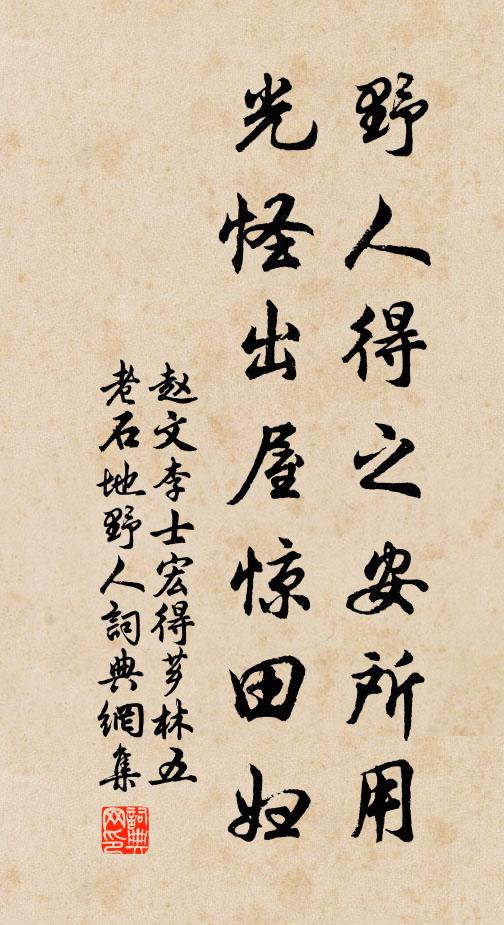 野人得之安所用
光怪出屋惊田妇
赵文李士宏得芗林五
老石地野人詞典網集
詞典网印